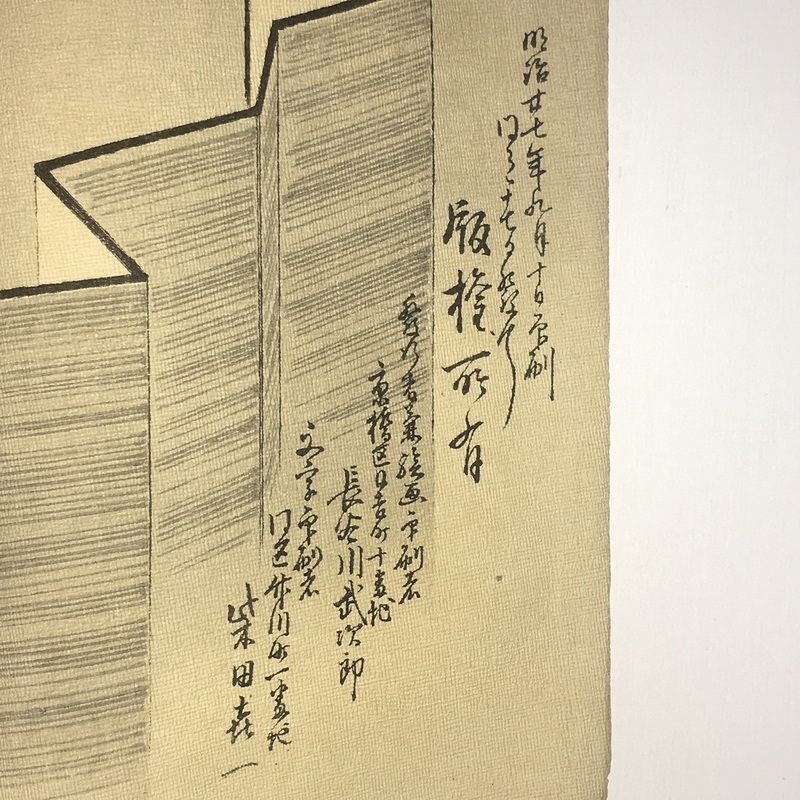 明治廿七年九月十日印刷
同年同月十七日発行
版権所有
発行者兼絵画印刷者
京橋区日吉町十番地
長谷川武次郎
文字印刷者
同区竹川町一番地
柴田喜一